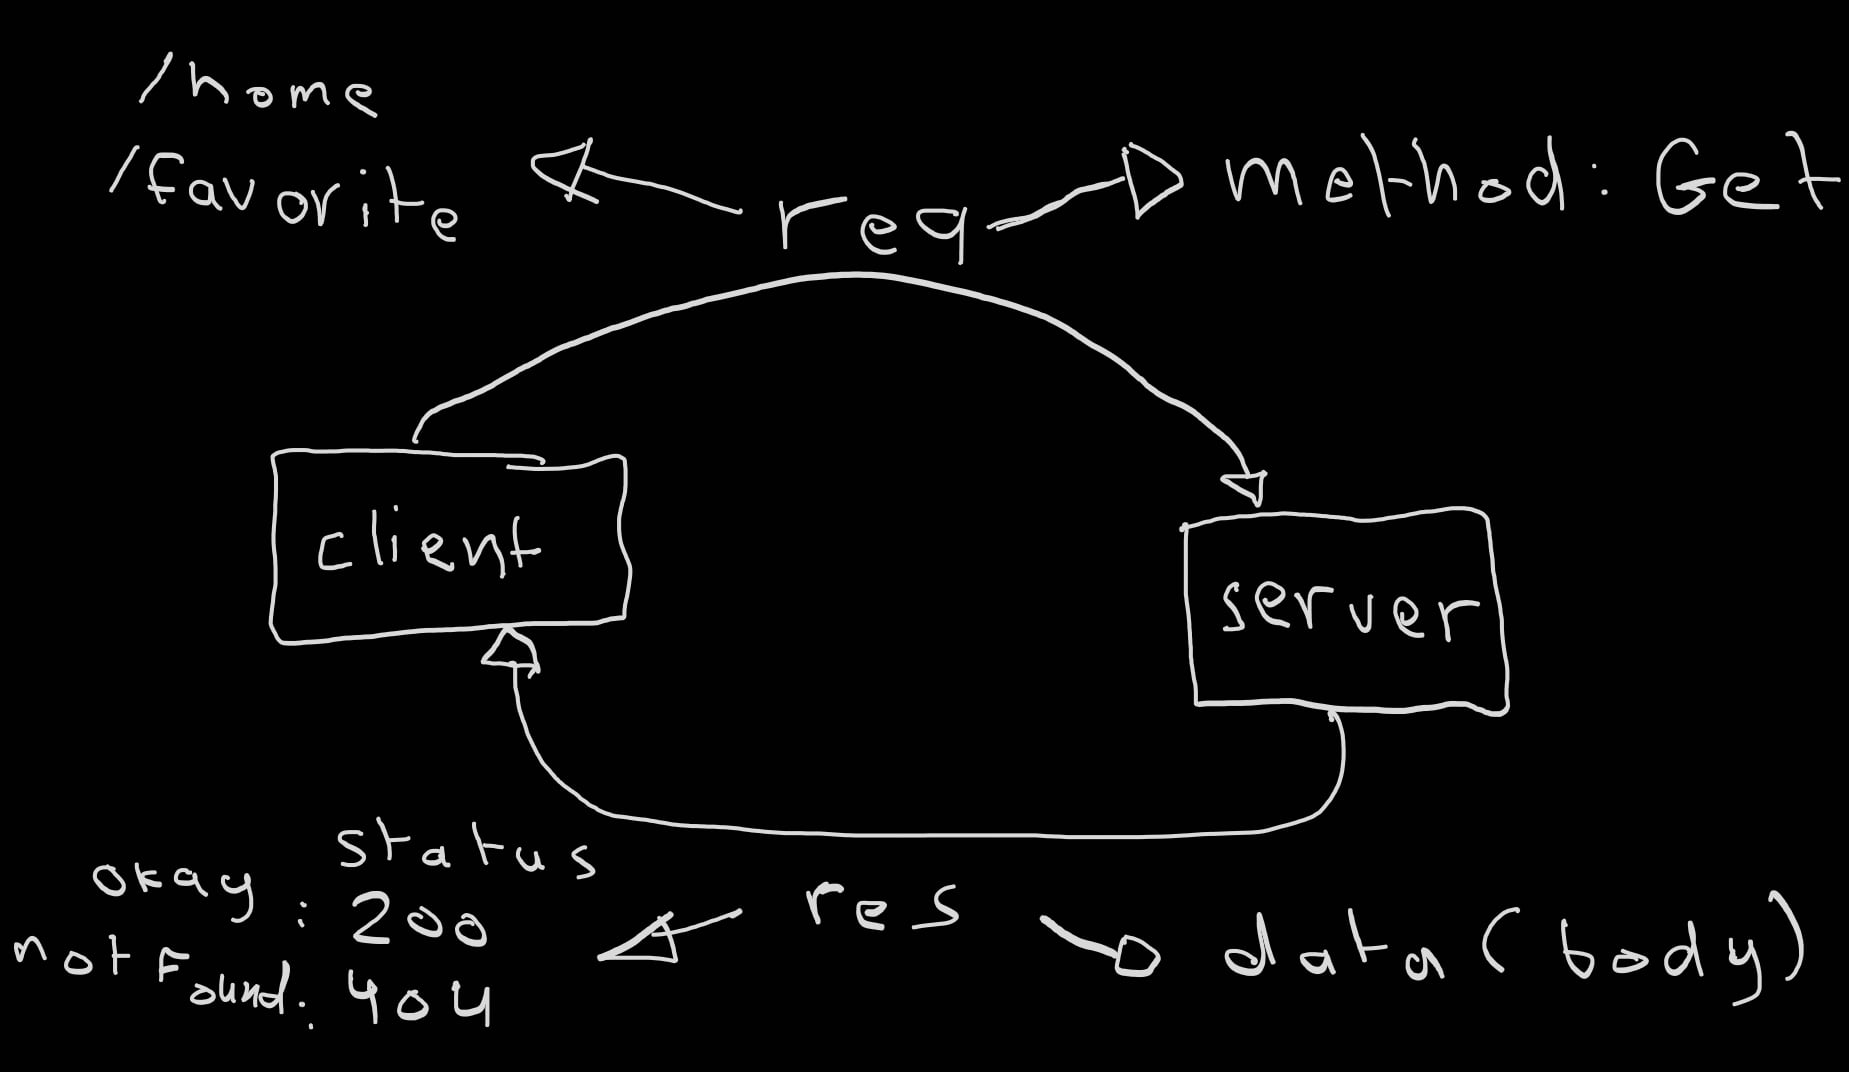 /home
/favorite
req
method: Get
client
server
status
okay: 200
not Found: 404
res
data (body)